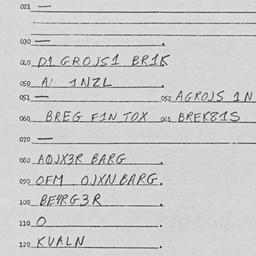 021 —
030 —
040 D1 GROJS1 BR1K
050 A1 1NZL
051 — 052 AGROJS 1N
060 BREG F1N TOX 061 BREK81S
070 —
080 AOJX3R BARG
090 OFM OJXN BARG.
100 BE4RG3R
110 O
120 KVALN